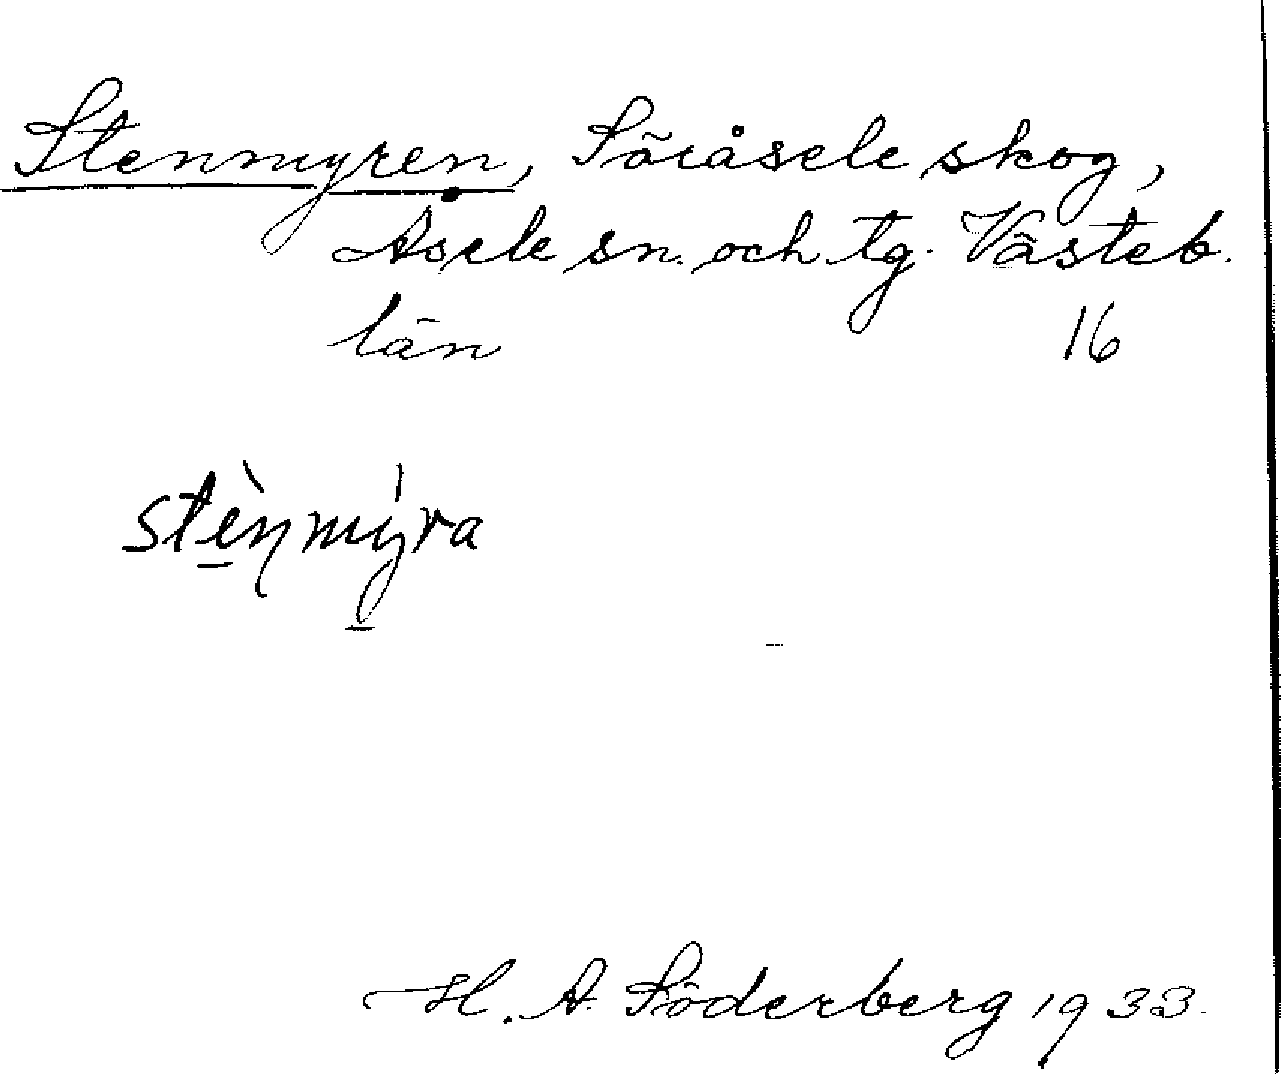 Stenmyren, Söråsele skog,
Åsele sn. och tg. Västeb.
län 16
stènmýra
H. A. Söderberg 1933.